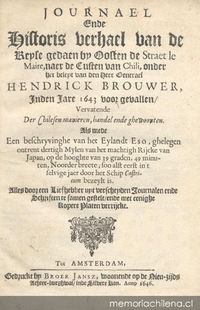 JOURNAEL
Ende
Historis verhael van de
Reyse gedaen by Oosten de Straet le
Maire, naer de Custen van Chili, onder
het beleyt van den Heer Generael
HENDRICK BROUWER,
Inden Jare 1643 voor gevallen,
Vervatende
Der Chilesen manieren, handel ende ghewoonten.
Als mede
Een beschryvinghe van het Eylandt Eso, ghelegen
ontrent dertigh Mylen van het machtigh Rijcke van
Japan, op de hooghte van 39 graden, 49 minu-
ten, Noorder breete; soo alst eerst in 't
selvige jaer door het Schip Castricum
bezeylt is.
Alles door een Liefhebber uyt verscheyden Journalen ende
Schriften te samen gestelt, ende met eenighe
Kopere Platen verrijckt.
Tot AMSTERDAM,
Gedruckt by BROER JANSZ, woonende op de Nieu-zijds
Achter-burghwal, inde Silvere Kan. Anno 1646.
memoriachilena.cl